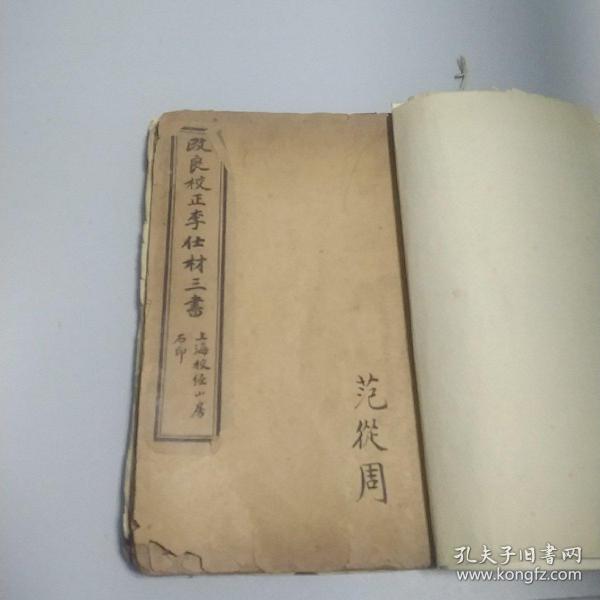 改良校正李仕材三書
上海校经山房
石印
范從周
孔夫子旧書网
www.kongfz.com